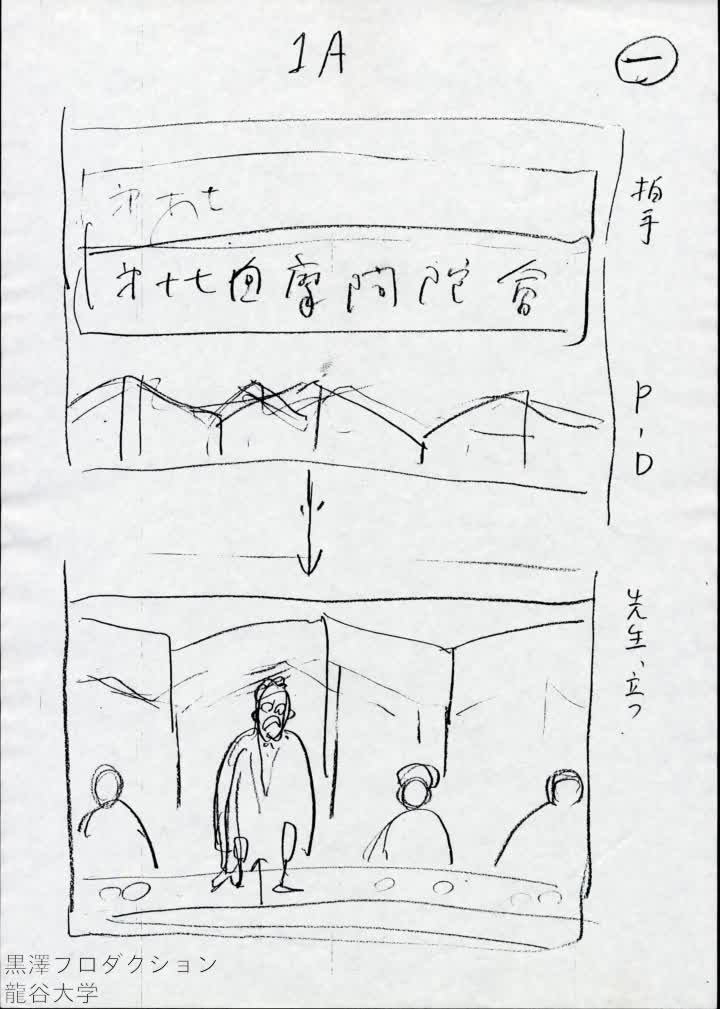 1A
一
拍手
㐧十七
㐧十七回摩阿陀會
P.D
先生、立つ
黒澤プロダクション
龍谷大学